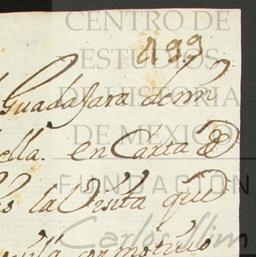 CENTRO DE
ESTUDIOS
DE HISTORIA
DE MEXICO
FUNDACIÓN
Carlos Slim
199
Guadalajara de mi
ella. en Carta de
la Visita que
con motivo